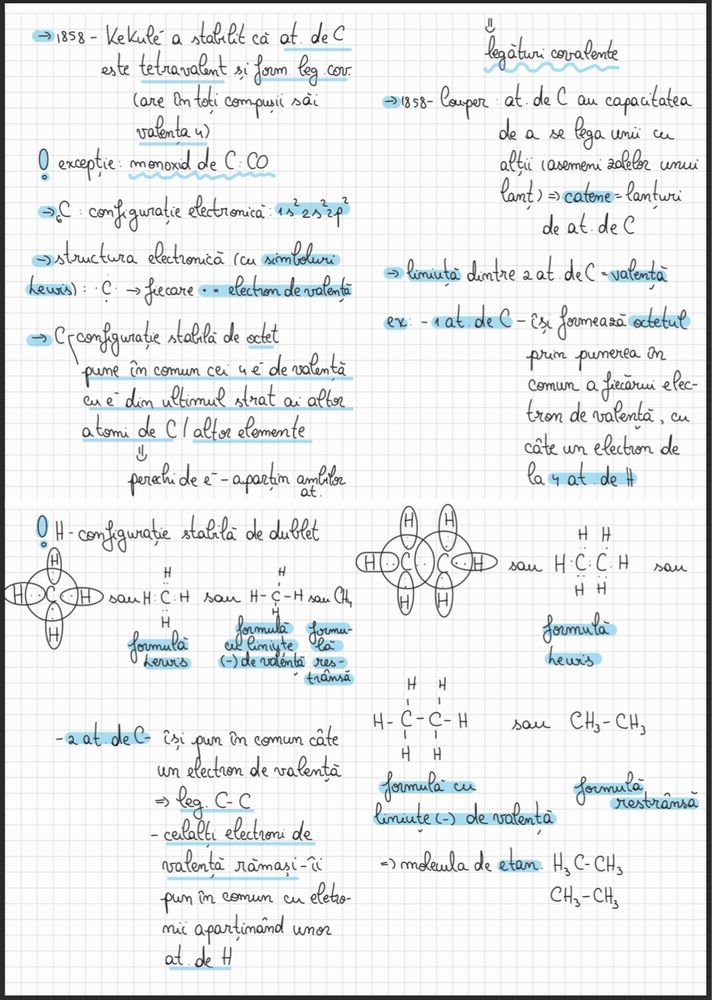 → 1858 - Kekulé a stabilit că at. de C
este tetravalent și form. leg. cov.
(are în toți compușii săi
valența 4)
! excepție: monoxid de C: CO
→ ₆C : configurație electronică: 1s² 2s² 2p²
→ structura electronică (cu simboluri
Lewis) : ·C· → fiecare · = electron de valență
→ C configurație stabilă de octet
pune în comun cei 4 e⁻ de valență
cu e⁻ din ultimul strat ai altor
atomi de C / altor elemente
⇓
perechi de e⁻ - aparțin ambilor
at.
⇓
legături covalente
→ 1858 - Couper: at. de C au capacitatea
de a se lega unii cu
alții (asemeni zalelor unui
lanț) ⇒ catene = lanțuri
de at. de C
→ liniuță dintre 2 at. de C = valență
ex: - 1 at. de C - își formează octetul
prin punerea în
comun a fiecărui elec-
tron de valență, cu
câte un electron de
la 4 at. de H
! H - configurație stabilă de dublet
H
H C H
H
sau
H
H : C : H
H
sau
H
H - C - H
H
sau CH₄
formulă
Lewis
formulă
cu liniuțe
(-) de valență
formu-
lă
res-
trânsă
- 2 at. de C - își pun în comun câte
un electron de valență
⇒ leg. C - C
- ceilalți electroni de
valență rămași - îi
pun în comun cu eletro-
nii aparținând unor
at. de H
H H
H C C H
H H
sau
H H
H : C : C : H
H H
sau
formulă
Lewis
H H
H - C - C - H
H H
sau CH₃ - CH₃
formulă cu
liniuțe (-) de valență
formulă
restrânsă
⇒ molecula de etan. H₃C - CH₃
CH₃ - CH₃